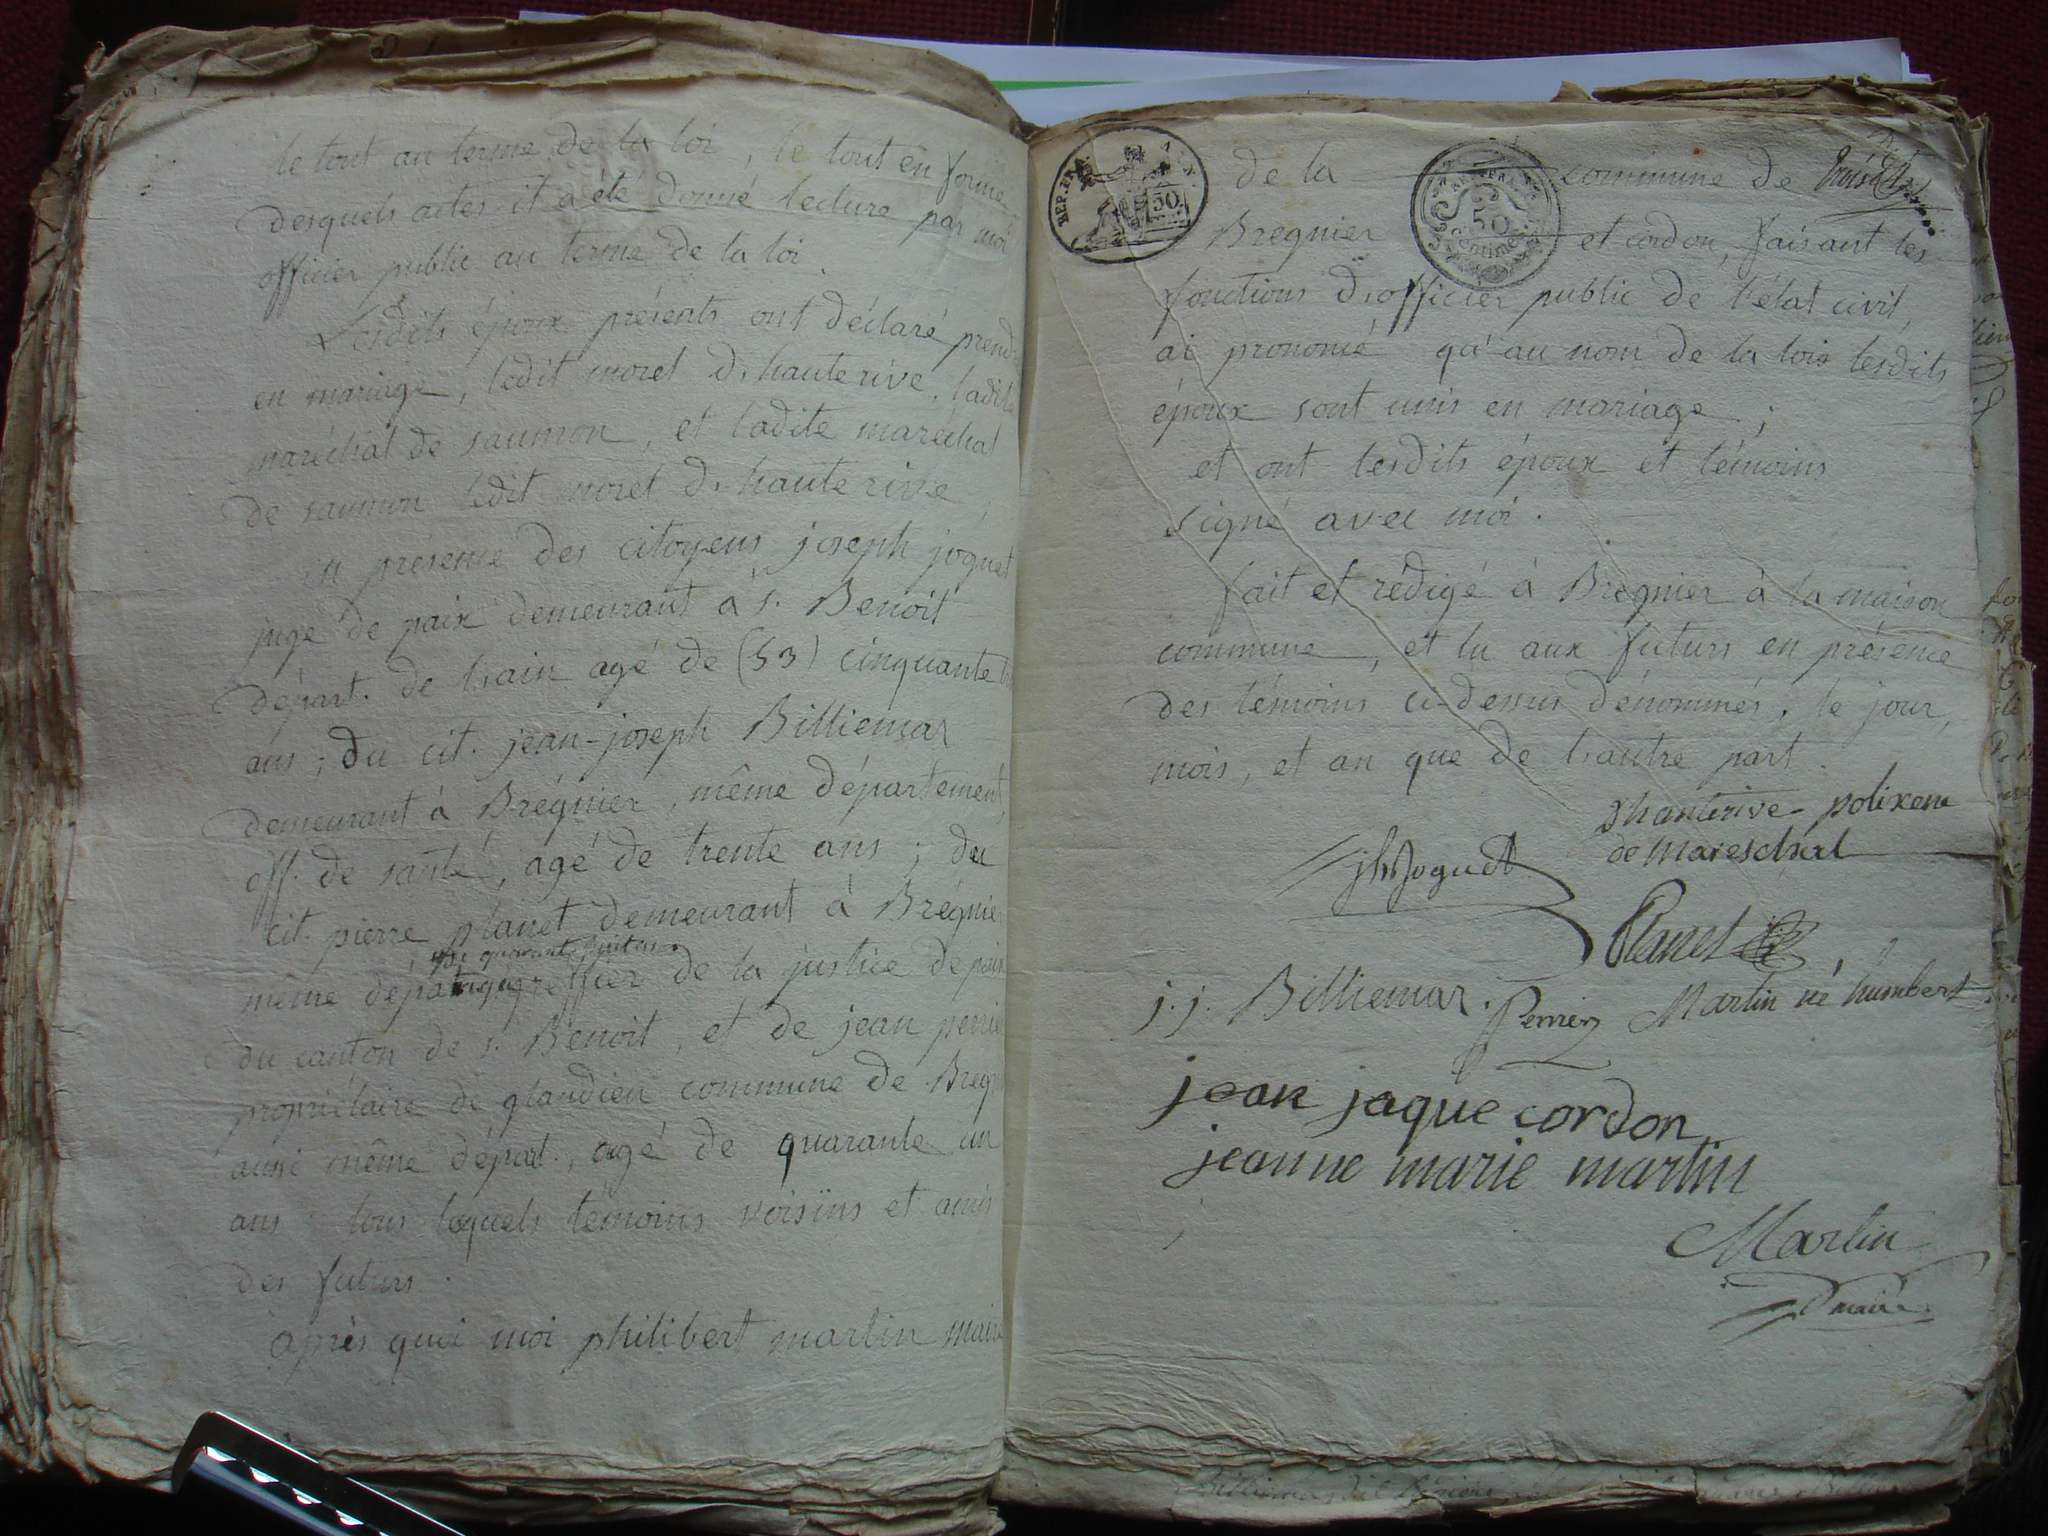 le tout au terme de la loi, le tout en forme
desquels actes il a été donné lecture par moi
officier public au terme de la loi.
Lesdits époux présents ont déclaré prend
en mariage, ledit moret d'hauterive, ladite
maréchal de saumon, et ladite maréchal
de saumon ledit moret d'hauterive
en présence des citoyens joseph joguet
juge de paix demeurant à s. Benoit
départ. de l'ain agé de (53) cinquante
ans; du cit. jean-joseph Billiemar
demeurant à Brégnier, même département,
off. de santé, agé de trente ans; du
cit. pierre planet demeurant à Brégnier
agé quarante huit ans
même départ greffier de la justice de paix
du canton de s. Benoit, et de jean perrier
propriétaire de glandieu commune de Breg
aussi même départ., agé de quarante un
ans tous lesquels témoins voisins et amis
des futurs.
après quoi moi philibert martin maire
REP. FRA. 50.
REP. FRA. 50 centimes
de la commune de
Bregnier et cordon, faisant les
fonctions d'officier public de l'état civil,
ai prononcé qu'au nom de la loix lesdits
époux sont unis en mariage;
et ont lesdits époux et témoins
signé avec moi.
fait et rédigé à Bregnier à la maison
commune, et lu aux futurs en présence
des témoins ci-dessus dénommés, le jour,
mois, et an que de l'autre part.
Dhauterive polixene
de Mareschal
jh Joguet
Planet
j. j. Billiemar. Perrier Martin né humbert
jean jaque cordon
jeanne marie martin
Martin
maire